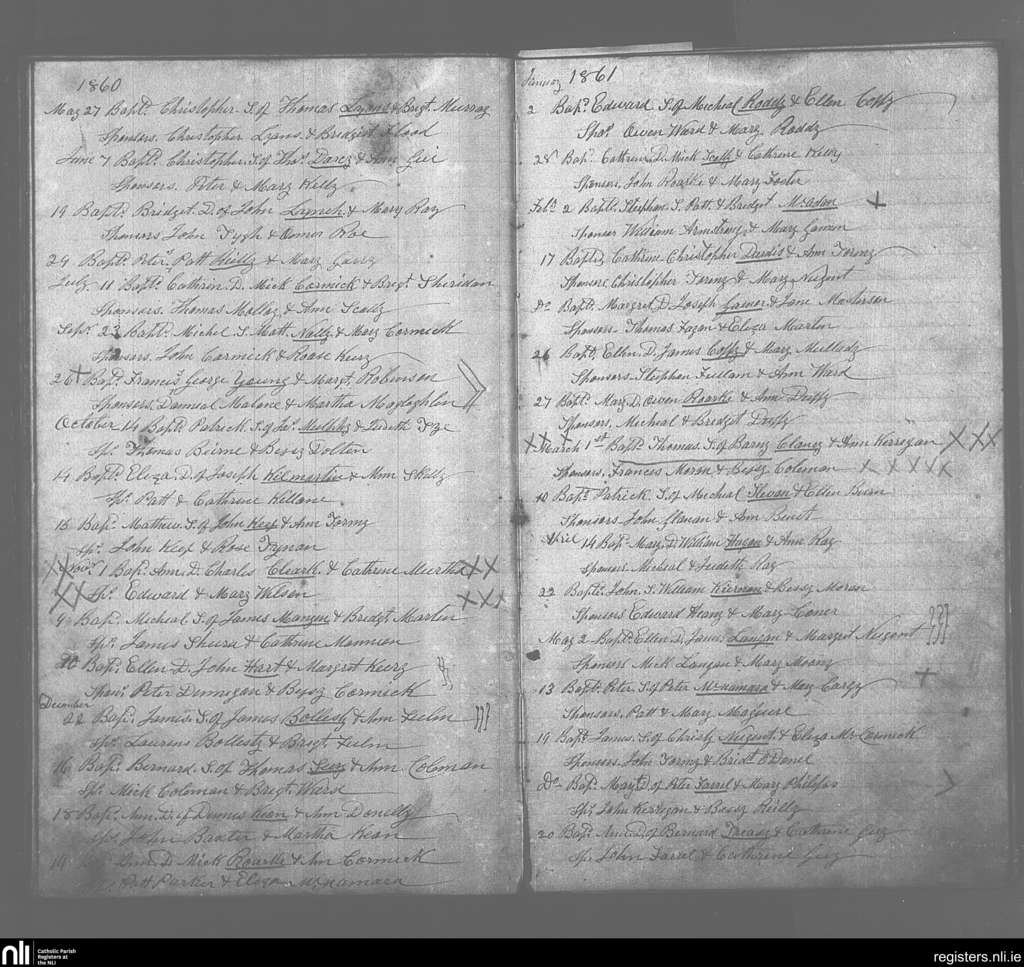 1860
May 27 Bapt. Christopher S. of Thomas Lyons & Brigt. Murray
Sponsors. Christopher Lyans & Bridget Flood
June 7 Bapt. Christopher. S. of Thos. Darcy & Ann Geir
Sponsors. Peter & Mary Kelly
19 Bapt. Bridget. D. of John Lynch & Mary Ray
Sponsors John Tygh & Roe
29 Bapt. Peter, Patt Reilly & Mary
July 11 Bapt. Cathrin. D. Mick Cormick & Brigt. Sheridan
Sponsors. Thomas Molloy & Ann Scally
Sept. 23 Bapt. Michel S. Matt. Nally & Mary Cormick
Sponsors. John Carmick & Roase Keirg
26 + Bapt. Francis, George Young & Margt. Robinson
Sponsors. Danieal Malone & Martha Maglaghlin
October 14 Bapt. Patrick. S. of & Judeth
Sp. Thomas Beirne & Bessy Dolten
14 Bapt. Eliza. D. of Joseph Kilmartin & Ann Skilly
Sp. Patt & Cathrene Killane
15 Bap. Mathew. S. of John Keef & Ann Tormy
Sp. John Keef & Rose Tynan
Nov. 1 Bap. Ann. D. Charles Cleark. & Cathrine Murtha XX
XX Sp. Edward & Mary Wilson XXX
9 Bap. Micheal S. of James Mangin & Bridgt Martin
Sp. James & Cathrine Mannion
10 Bap. Ellen D. John Hart & Margret Keerg
Spon. Peter Dunnigan & Bessy Cormick
December
22 Bap. James. S. of James Bollesty & Ann Fulm
Sp. Laurens Bollesty & Brigt. Fulm
16 Bap. Bernard. S. of Thomas & Ann Colman
Sp. Mick Coleman & Brigt. Ward
18 Bap. Ann. D. of Dennis Kean & Ann Donilly
Sp. John Baxter & Martha Kean
D. Mick Roarke & Ann Cormick
Patt Parker & Elizan McNamara
January 1861
2 Bap. Edward S. of Micheal Roddy & Ellen Coffy
Spo. Owen Ward & Mary Roddy
28 Bap. Cathrin. D. Mick Scally & Cathrene Kelly
Sponsors, John Roarke & Mary Foster
Feb. 2 Bapt. Stephan S. Patt. & Bridget +
Sponsor William Armstrong & Mary
17 Bapt. Cathrine Christopher Dardis & Ann Tormy
Sponsors Christopher Tormy & Mary Nugent
Do. Bapt. Margret D. Joseph & Jane
Sponsors. Thomas Fagan & Eliza Martin
26 Bapt. Ellen. D. James Coffy & Mary Mullady
Sponsors. Stephan Fullam & Ann Ward
27 Bapt. Mary D. Owen Roarke & Ann Duffy
Sponsors, Micheal & Bridget Duffy
March 1st Bapt. Thomas. S. of Barny Clancy & Ann Kerrigan XXX
Sponsors, Frances Moran & Bessy Coleman XXXXX
10 Bap. Patrick. S. of Micheal Slevan & Ellen Beirn
Sponsors John flanan & Ann Benet
April 14 Bap. Mary D. William Hagan & Ann Ray
Sponsors Micheal & Judeth Ray
22 Bapt. John. S. William Kiernan & Bessy Moran
Sponsors Edward Heany & Mary Coner
May 2 Bapt. Ellen D. James Langan & Margret Nugent
Sponsors Mick Langan & Mary Moany
13 Bapt. Peter. S. of Peter McNamara & Mary Carey +
Sponsors, Patt & Mary Maguere
19 Bapt. James. S. of Christy Nugent & Eliza McCormick
Sponsors. John Tormy & Bridt. O'Donel
Do. Bap. Mary D. of Peter Farrel & Mary Philips
Sp. John Kerrigan & Bessy Reilly
20 Bap. Ann. D. of Bernard Treacy & Cathrine
Sp. John Farrel & Cathrine
nli
Catholic Parish
Registers at
the NLI
registers.nli.ie